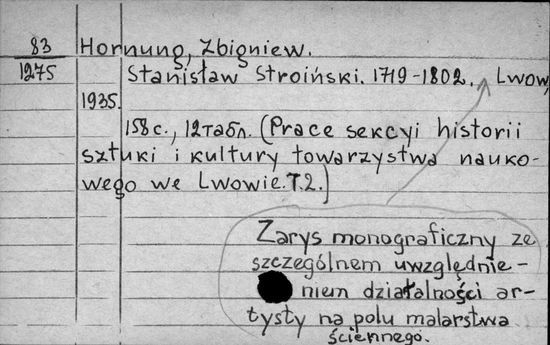 83 Hornung, Zbigniew.
1275 Stanisław Stroiński. 1719-1802. Lwow,
1935.
158 с., 12 табл. (Prace sekcyi historii
sztuki i kultury towarzystwa nauko-
wego we Lwowie. T. 2.)
Zarys monograficzny ze
szczególnem uwzględnie-
niem działalności ar-
tysty na polu malarstwa
ściennego.